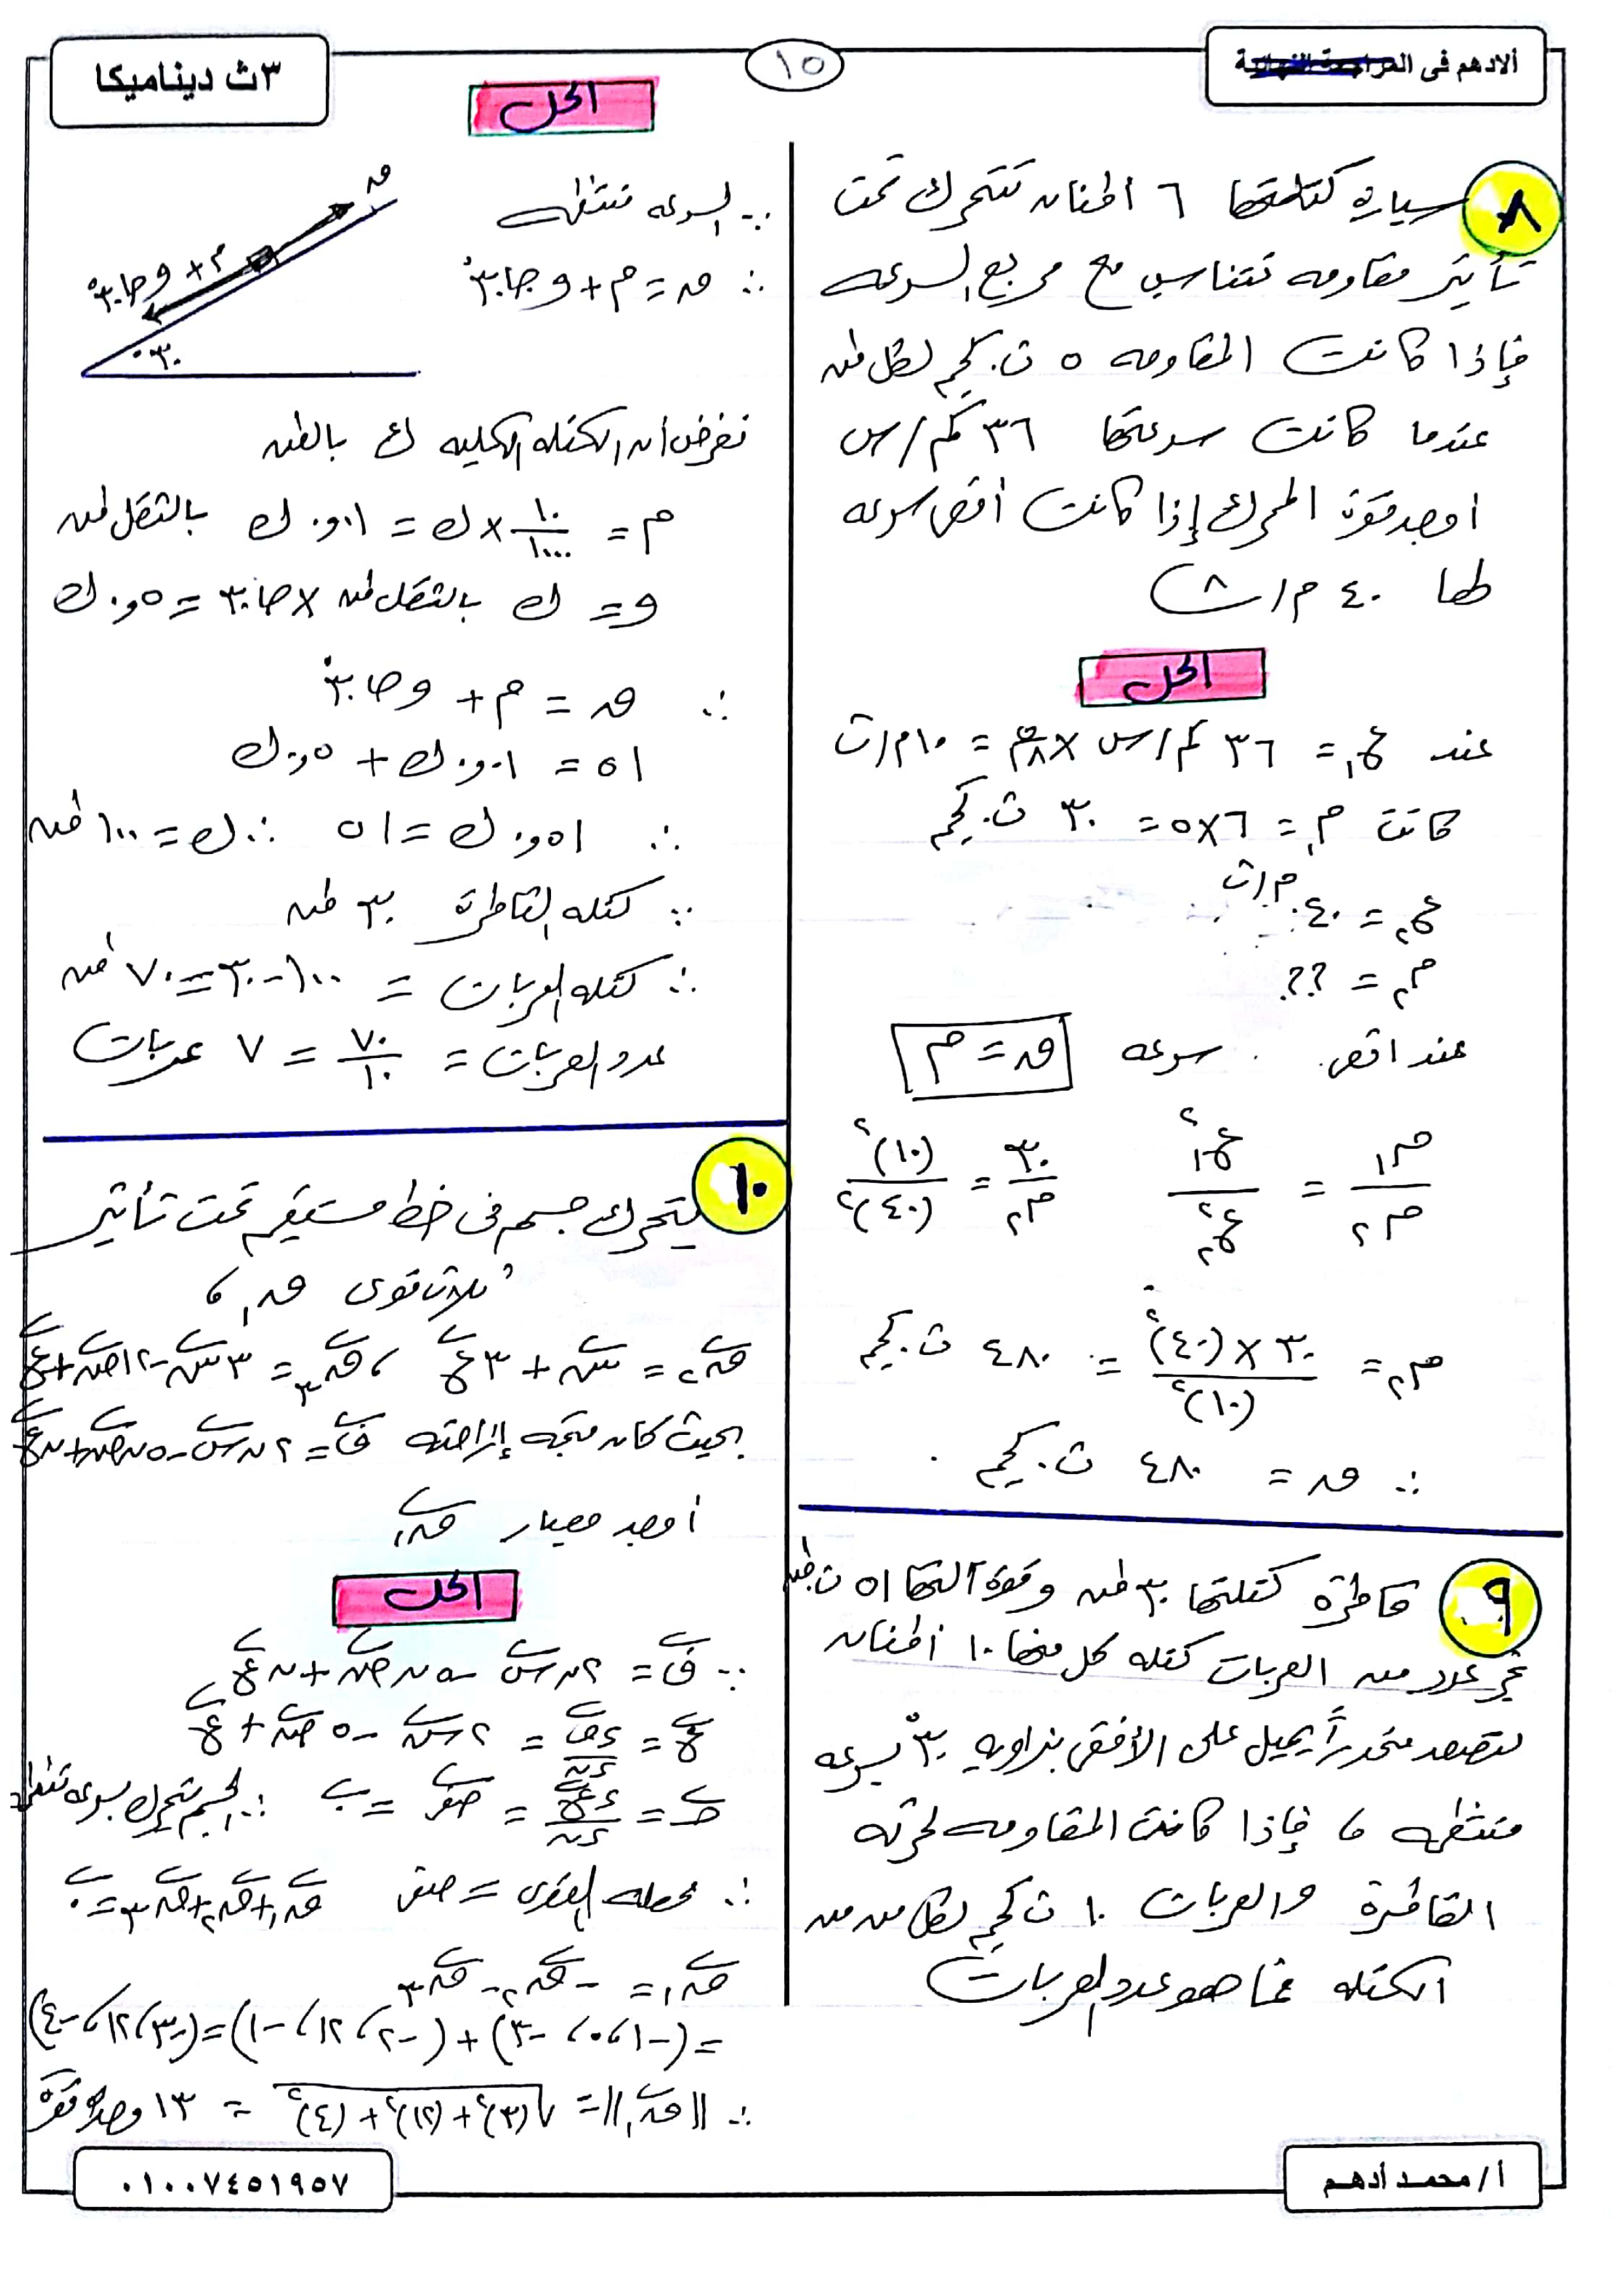 ألادهم فى
١٥
٣ث ديناميكا
٨ سيارة كتلتها ٦ أطنان تتحرك تحت
تأثير مقاومه تتناسب مع مربع السرعه
فإذا كانت المقاومه ٥ ث.كجم لكل طن
عندما كانت سرعتها ٣٦ كم/س
أوجد قوة المحرك إذا كانت أقصى سرعه
لها ٤٠ م/ث
الحل
عند ع١ = ٣٦ كم/س × ٥/١٨ = ١٠ م/ث
كانت م١ = ٦×٥ = ٣٠ ث.كجم
ع٢ = ٤٠ م/ث
م٢ = ??
عند اقصى سرعه ق = م
م١/م٢ = ع١²/ع٢² ٣٠/م٢ = (١٠)²/(٤٠)²
م٢ = ٣٠ × (٤٠)²/(١٠)² = ٤٨٠ ث.كجم
∴ ق = ٤٨٠ ث.كجم
٩ قاطرة كتلتها ٣٠ طن وقوة آلتها ٥١ ث.طن
تجر عدد من العربات كتله كل منها ١٠ أطنان
لتصعد منحدراً يميل على الأفقى بزاويه ٣٠° بسرعه
منتظمه ، فإذا كانت المقاومه لحركه
القاطرة والعربات ١٠ ث كجم لكل طن من
الكتله فما هو عدد العربات
الحل
∵ السرعه منتظمه
∴ ق = م + و جا ٣٠°
ق
م + و جا ٣٠°
٣٠°
نفرض أن الكتله الكليه ك بالطن
م = ١٠/١٠٠٠ × ك = ٠,٠١ ك بالثقل طن
و = ك بالثقل طن × جا ٣٠ = ٠,٥ ك
∴ ق = م + و جا ٣٠°
٥١ = ٠,٠١ ك + ٠,٥ ك
∴ ٠,٥١ ك = ٥١ ∴ ك = ١٠٠ طن
∵ كتله القاطرة ٣٠ طن
∴ كتله العربات = ١٠٠ - ٣٠ = ٧٠ طن
عدد العربات = ٧٠/١٠ = ٧ عربات
١٠ يتحرك جسم فى خط مستقيم تحت تأثير
ثلاث قوى ق١ ،
ق٢ = س + ٣ع ، ق٣ = ٣س - ١٢ص + ع
بحيث كان متجه إزاحته ف = ٢ن س - ٥ن ص + ن ع
أوجد معيار ق١
الحل
∵ ف = ٢ن س - ٥ن ص + ن ع
ع = دف/دن = ٢س - ٥ص + ع
جـ = دع/دن = صفر = ٠ ∴ الجسم يتحرك بسرعه منتظمه
∴ محصله القوى = صفر ق١ + ق٢ + ق٣ = ٠
ق١ = - ق٢ - ق٣
= (-١، ٠، -٣) + (-٢، ١٢، -١) = (-٣، ١٢، -٤)
∴ ||ق١|| = √(٣)² + (١٢)² + (٤)² = ١٣ وحدة قوة
أ/ محمد أدهم
٠١٠٠٧٤٥١٩٥٧